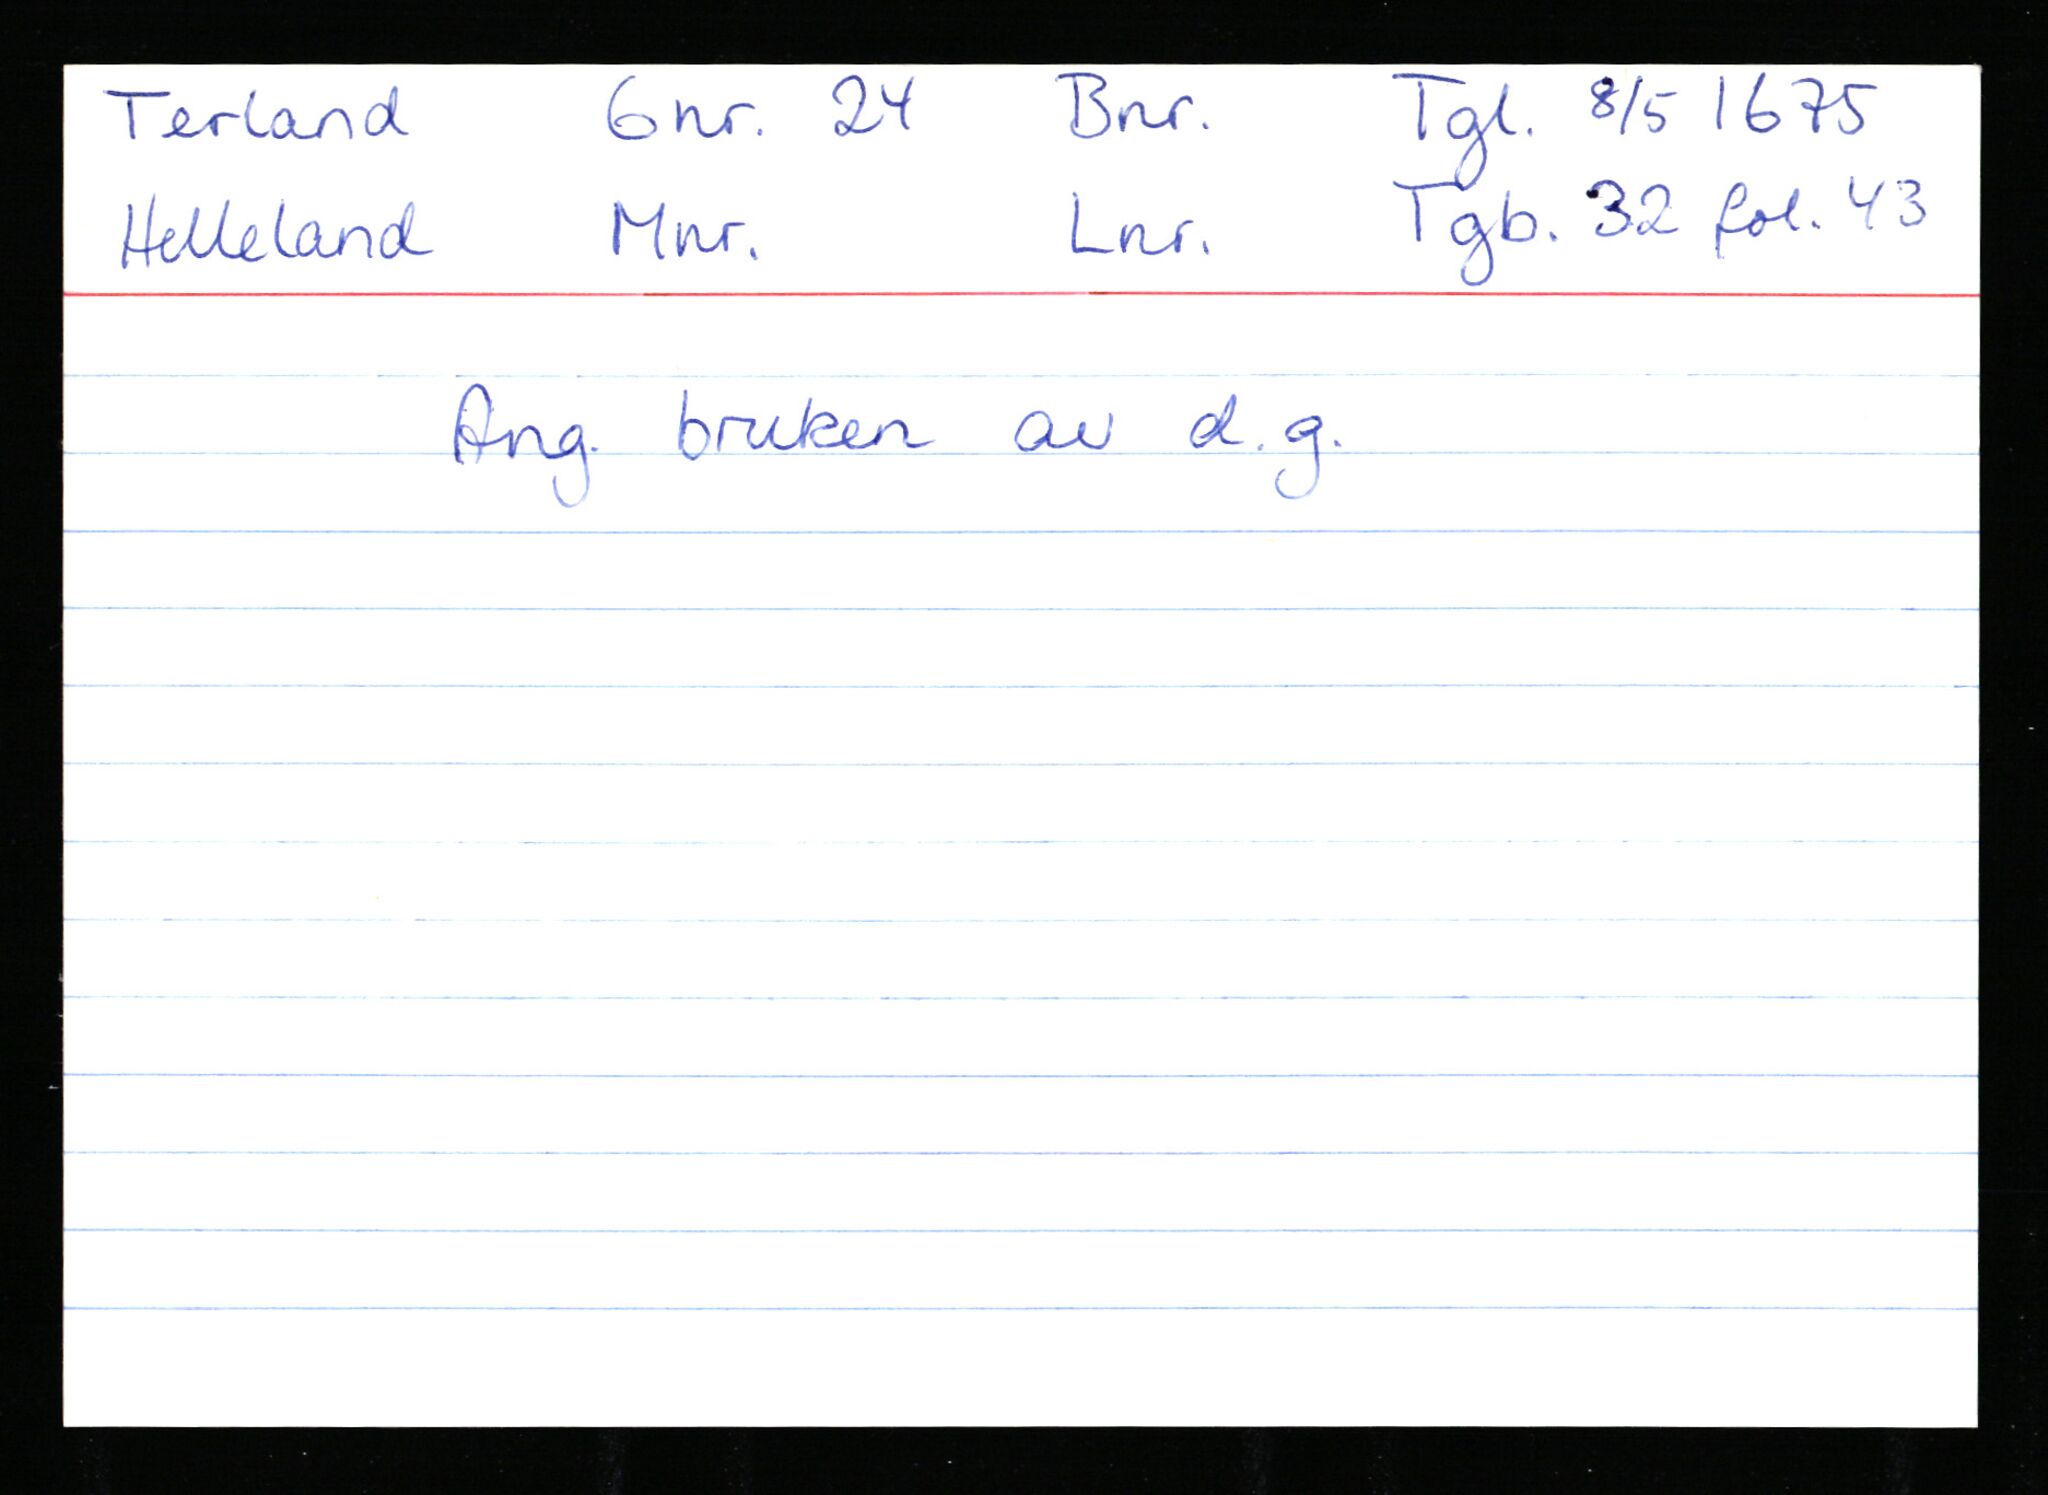 Terland Gnr. 24 Bnr. Tgl. 8/5 1675
Helleland Mnr. Lnr. Tgb. 32 fol. 43
Ang. bruken av d.g.